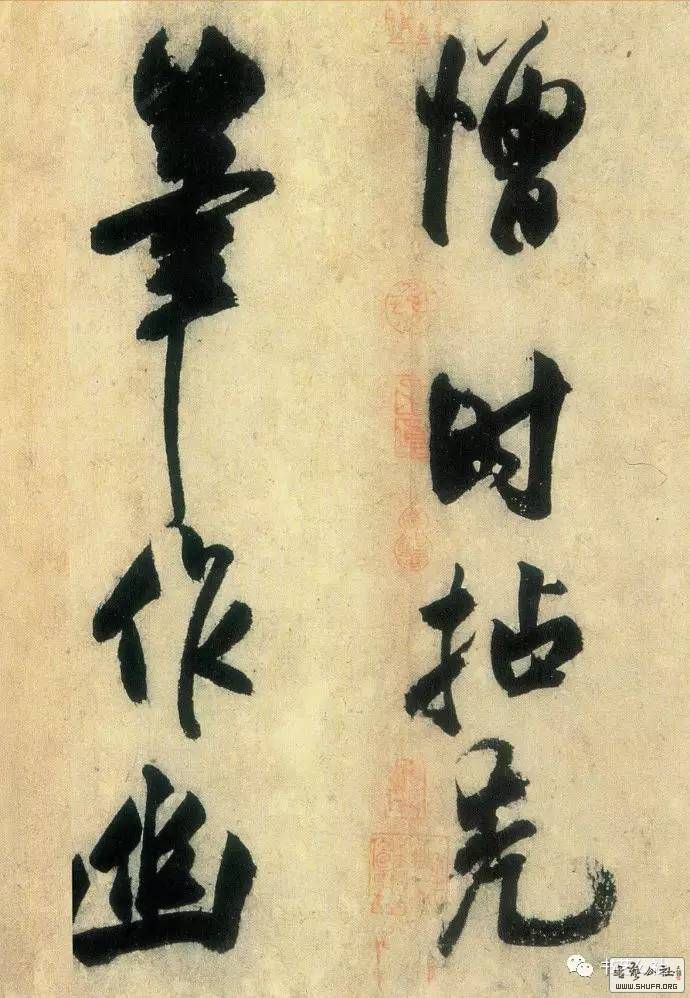 憎时拈秃
筆作幽
书艺公社
WWW.SHUFA.ORG